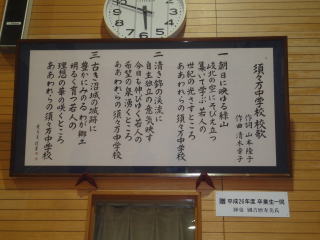 須々万中学校 校歌
作詞 山本隆子
作曲 清木章子
一 朝日に映ゆる緑山
岐北の空にそびえ立つ
集いて学ぶ 若人の
世紀の光さすところ
ああわれらの須々万中学校
二 清き錦の渓流に
自主独立の意気映す
今日も伸びゆく若人の
希望の泉湧くところ
ああわれらの須々万中学校
三 古き沼城の城跡に
豊かにみのるわが郷土
明るく育つ若人の
理想の華の咲くところ
ああわれらの須々万中学校
贈 平成26年度 卒業生一同